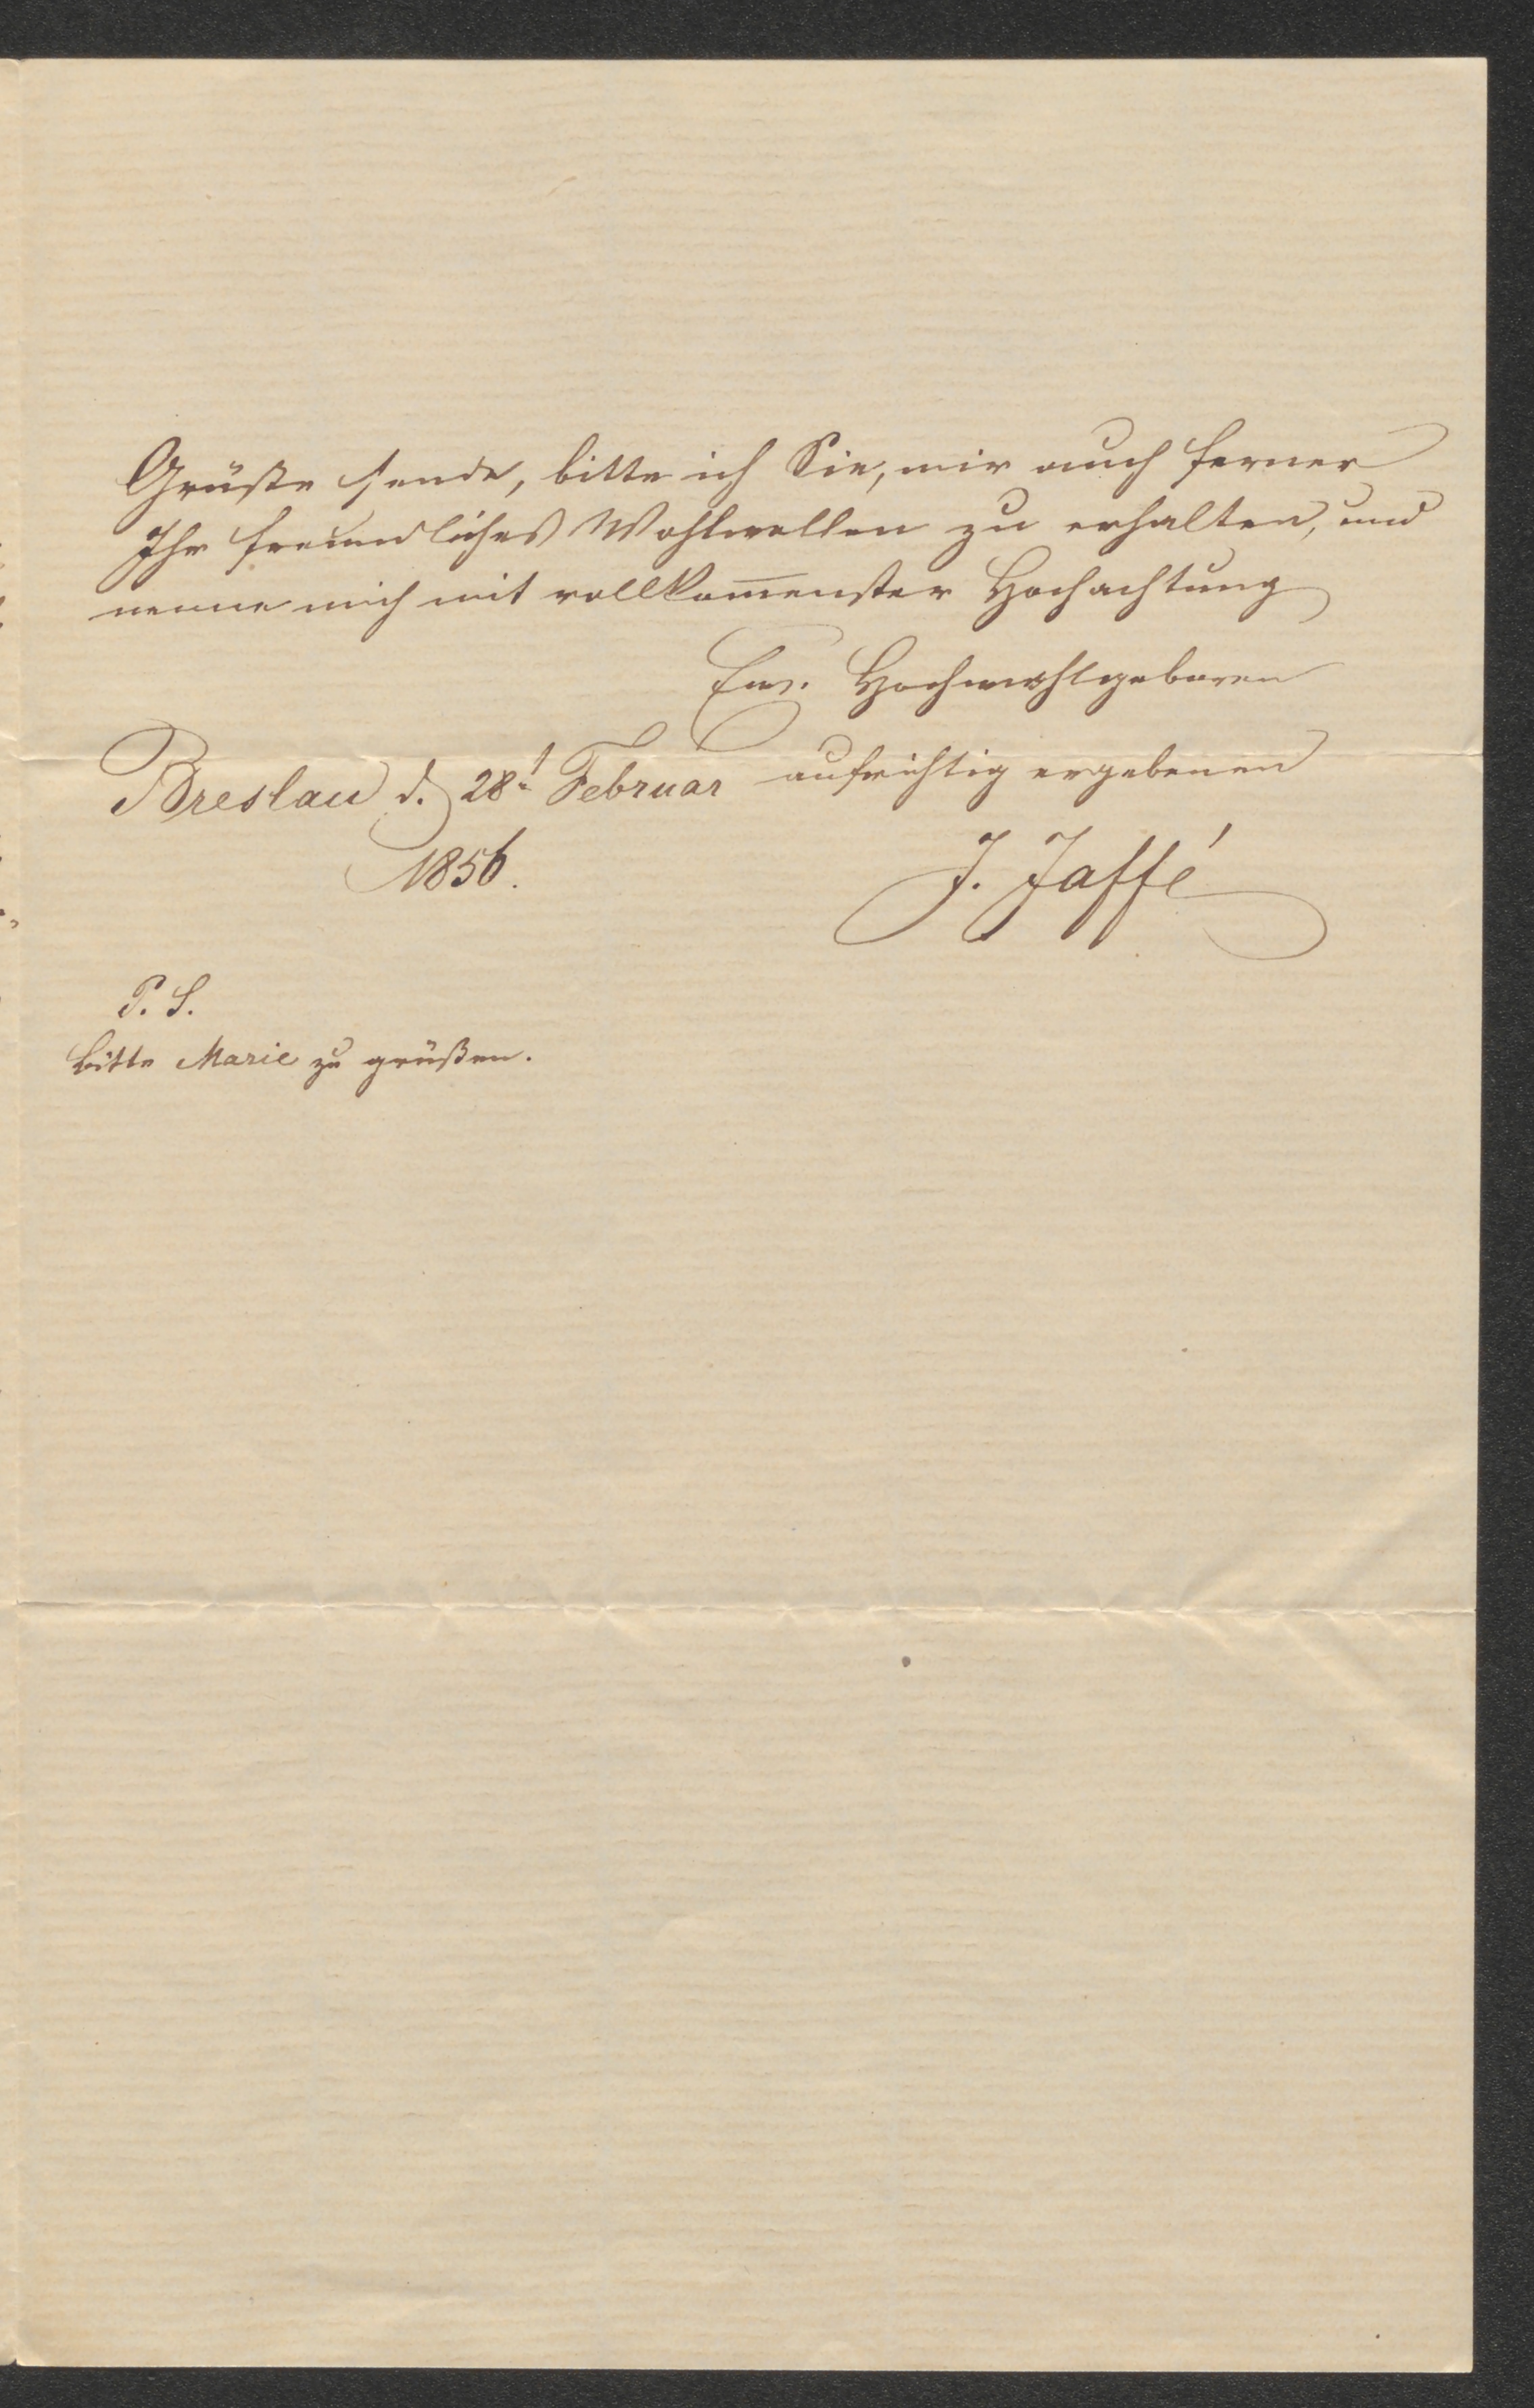 Grüße sende, bitte ich Sie, mir auch ferner
Ihr freundliches Wohlwollen zu erhalten, und
nenne mich mit vollkom̅enster Hochachtung
Ew. Hochwohlgeboren
aufrichtig ergebenen
Breslau d. 28t. Februar
1856.
J. Jaffé
P. S.
Bitte Marie zu grüßen.